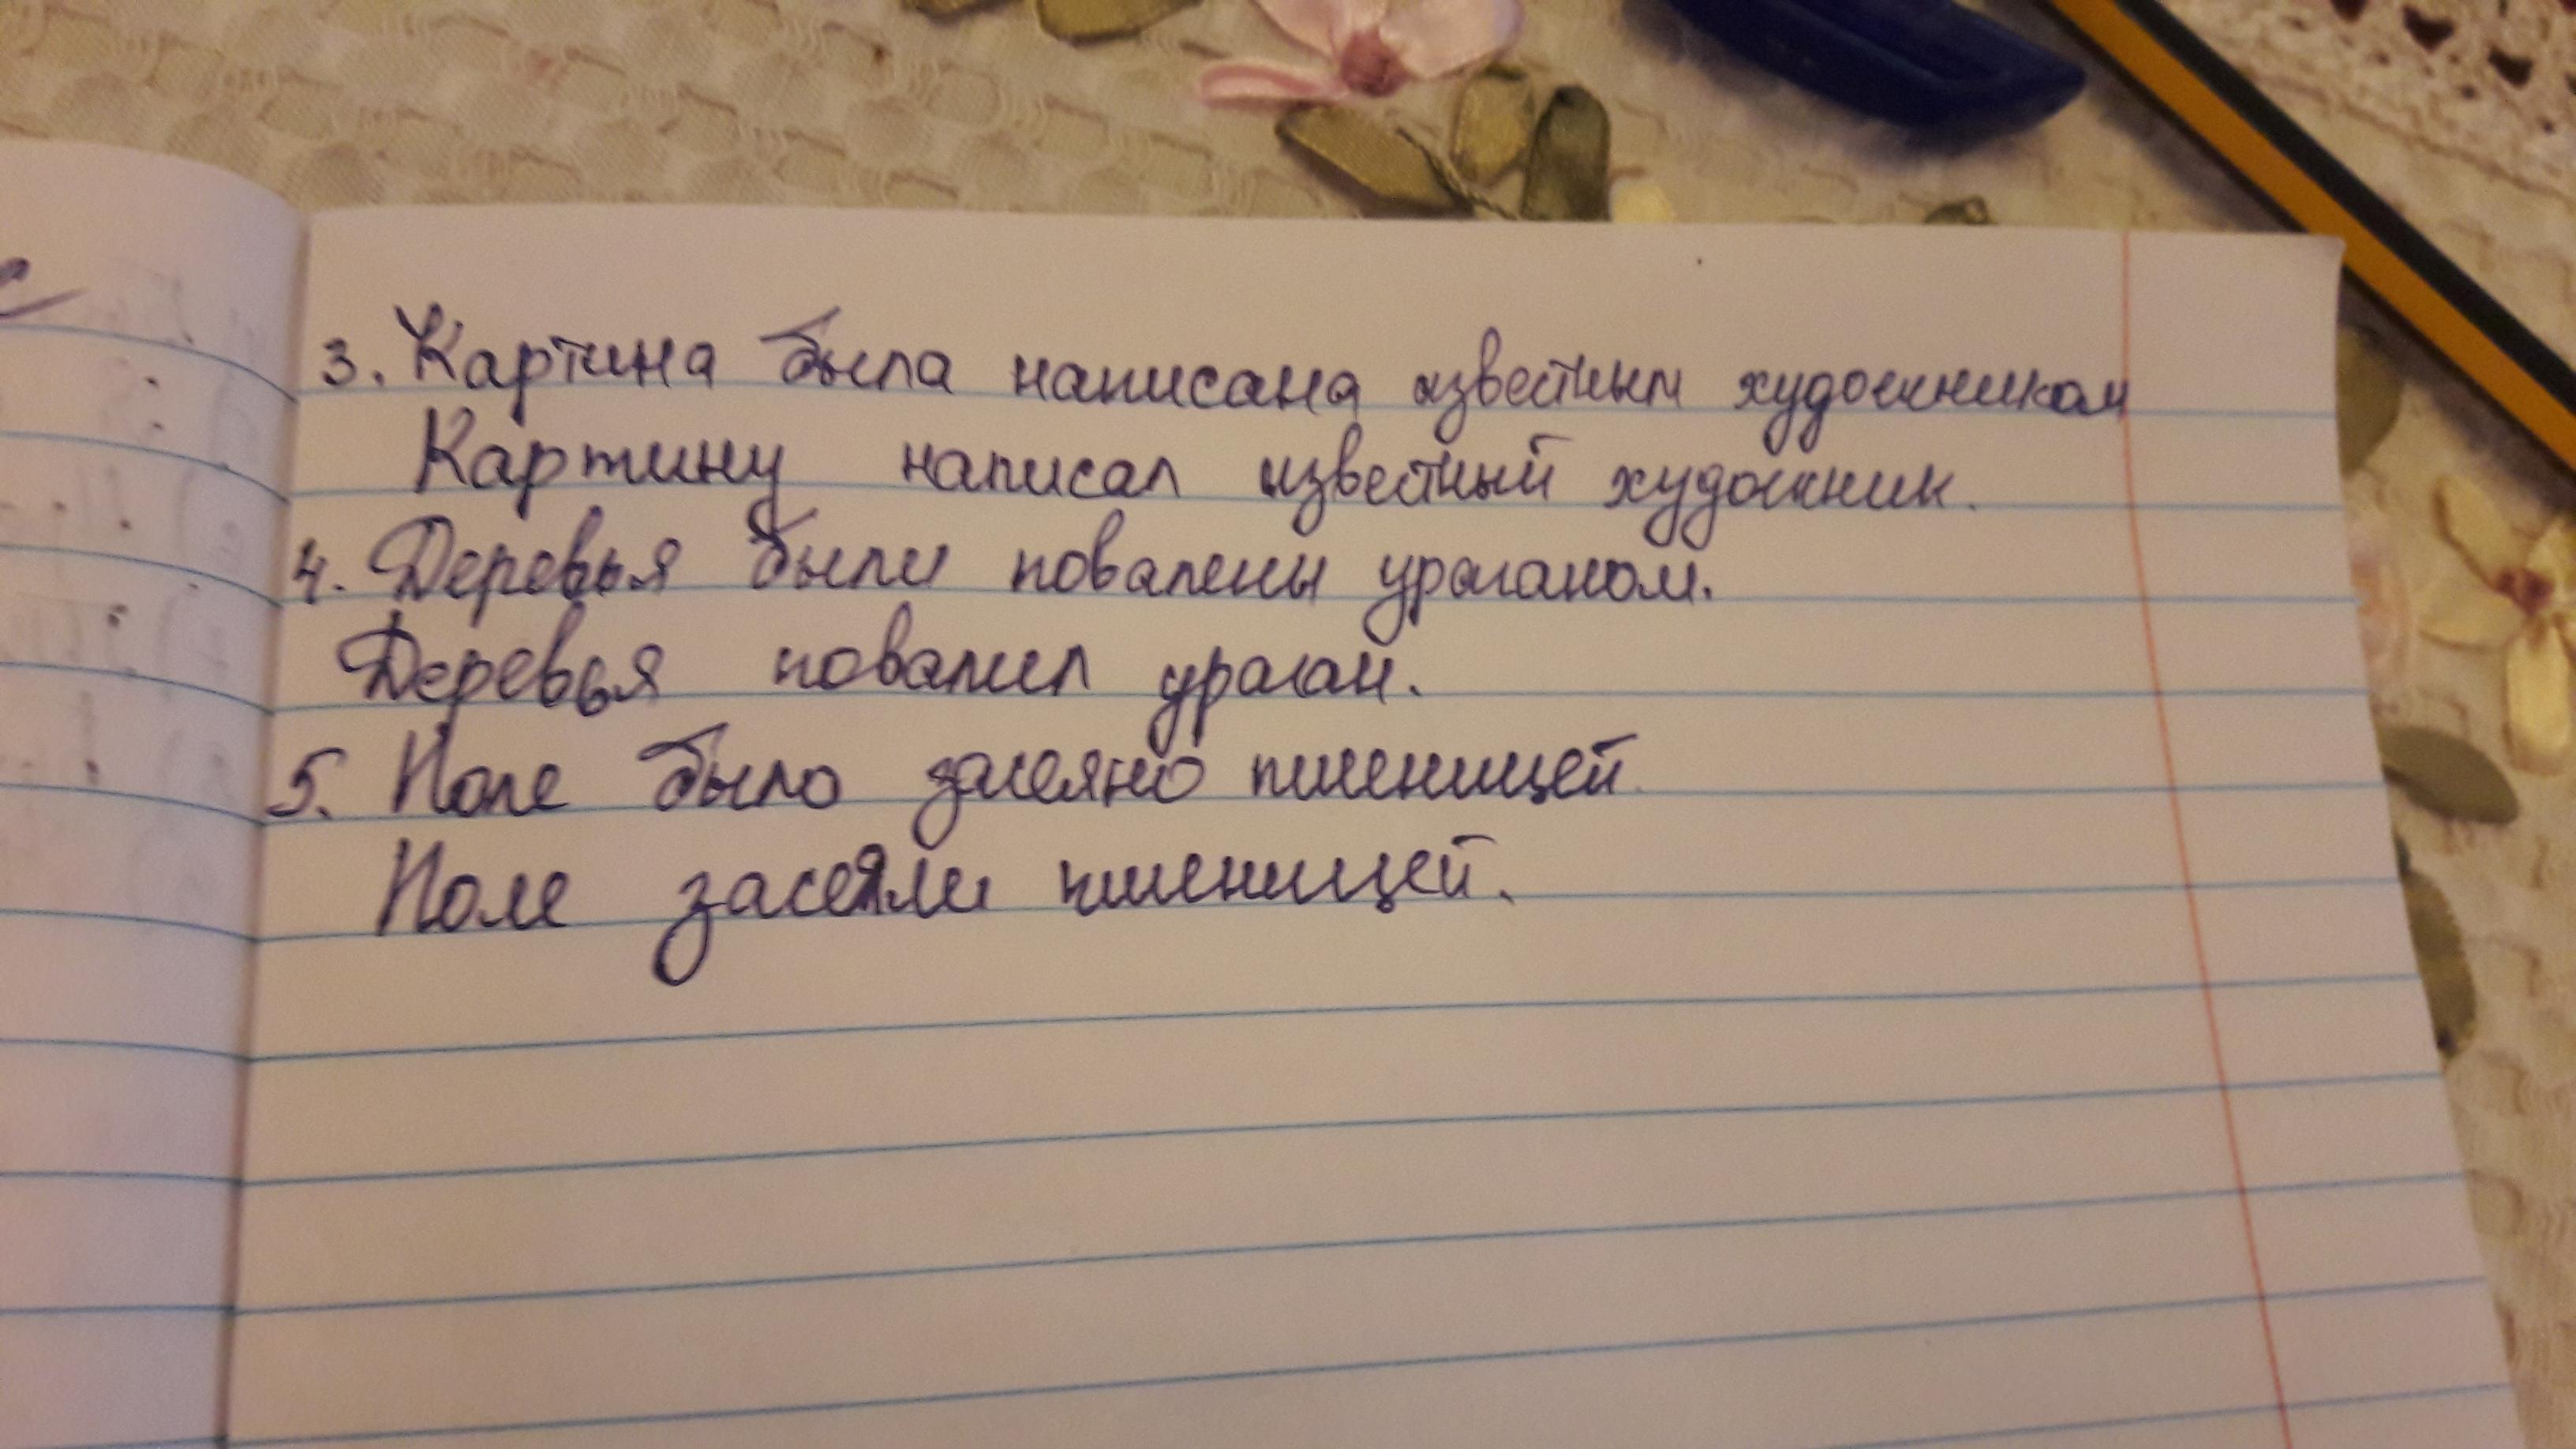 3. Картина была написана известным художником
Картину написал известный художник.
4. Деревья были повалены ураганом.
Деревья повалил ураган.
5. Поле было засеяно пшеницей.
Поле засеяли пшеницей.